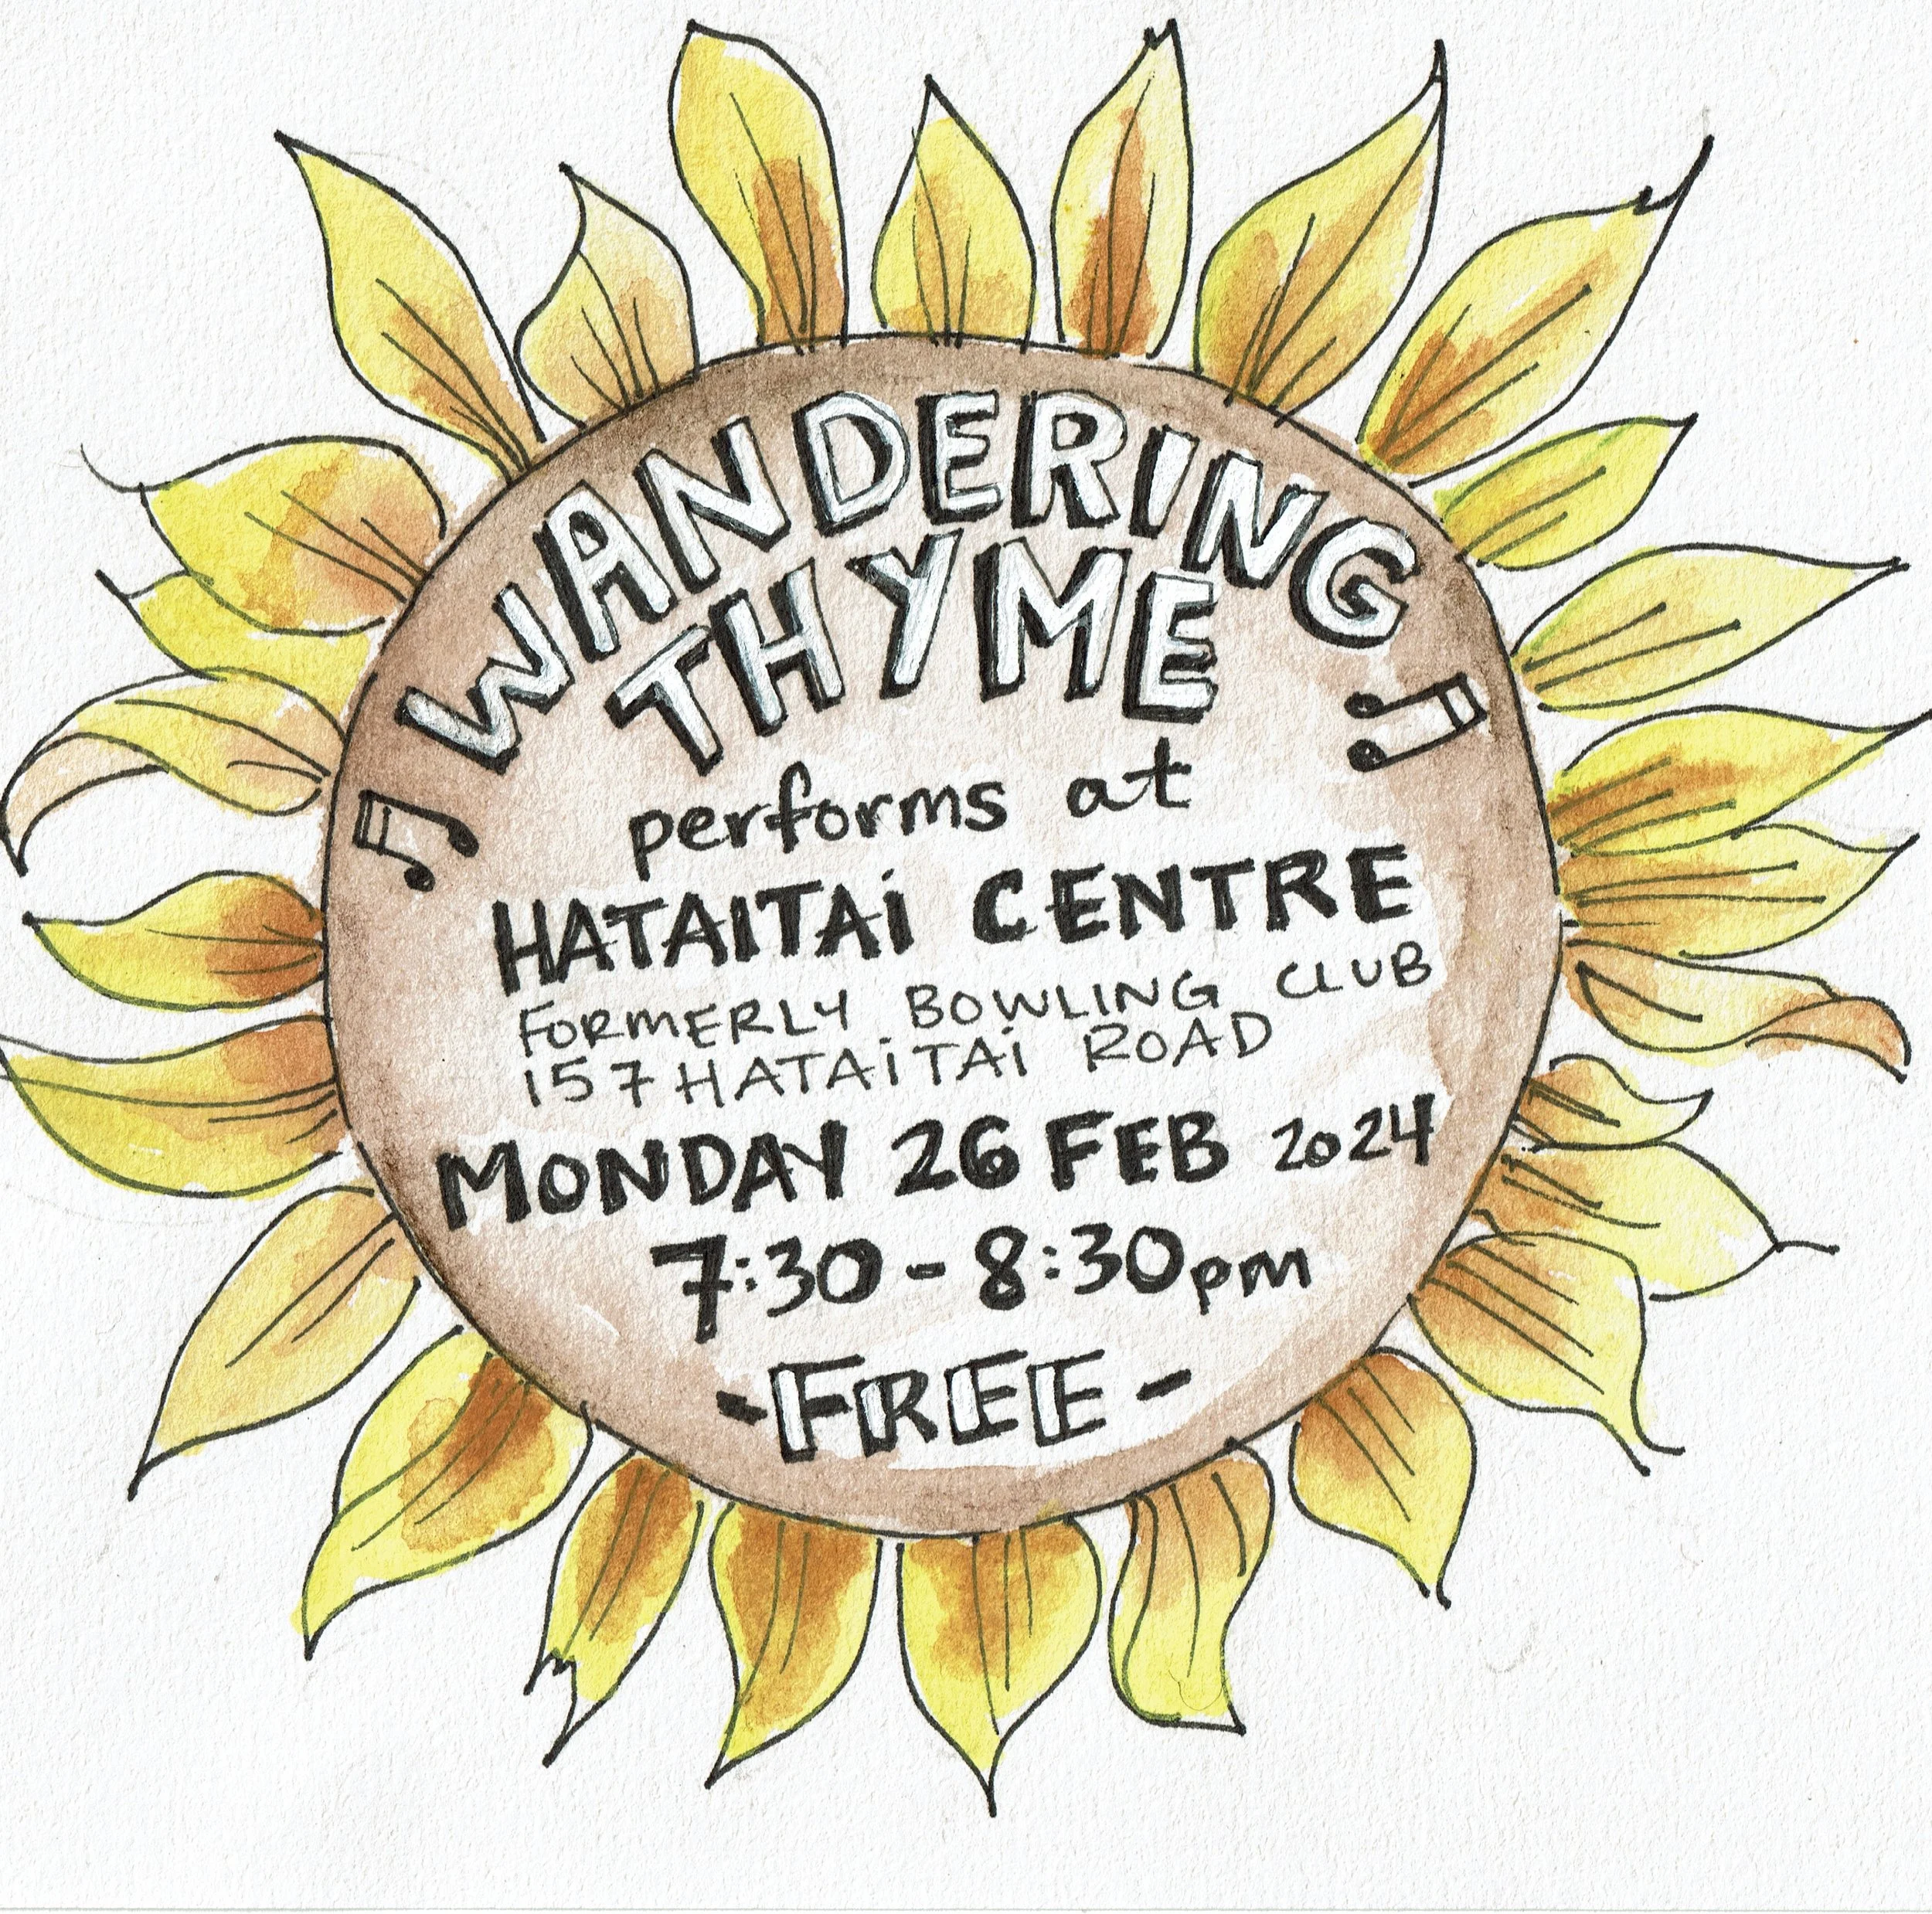 WANDERING
THYME
performs at
HATAITAi CENTRE
FORMERLY BOWLING CLUB
157 HATAiTAi ROAD
MONDAY 26 FEB 2024
7:30 - 8:30pm
- FREE -